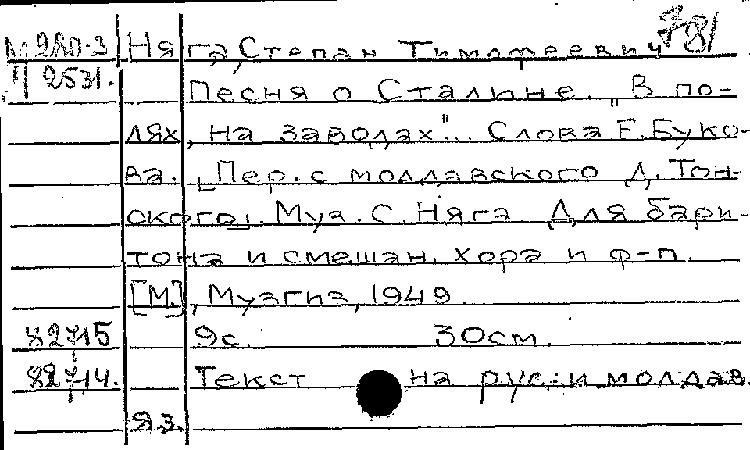 М 980-3 Няга, Степан Тимофеевич 781
2531. Песня о Сталине. „В по-
лях, на заводах"... Слова Е. Буко-
ва. [Пер. с молдавского Д. Тон-
ского]. Муз. С. Няга. Для бари-
тона и смешан. хора и ф-п.
[М.], Музгиз, 1949.
82715 9с. 30см.
82714. Текст на рус. и молдав.
яз.